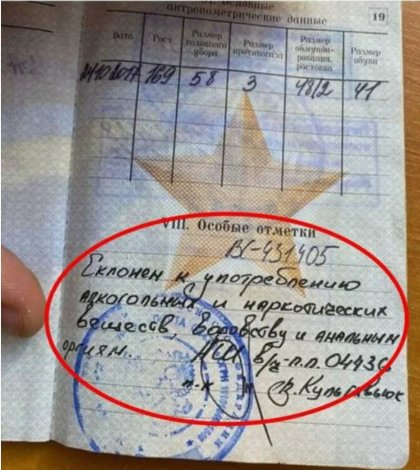 Основные
антропометрические данные
19
Дата Рост Размер головного убора Размер противогаза Размер обмундирования, ростовка Размер обуви
24.10.2017 169 58 3 48/2 41
VIII. Особые отметки
ВС-431405
Склонен к употреблению
алкогольных и наркотических
веществ, воровству и анальным
оргиям. НШ в/ч-п.п. 04436
п-к